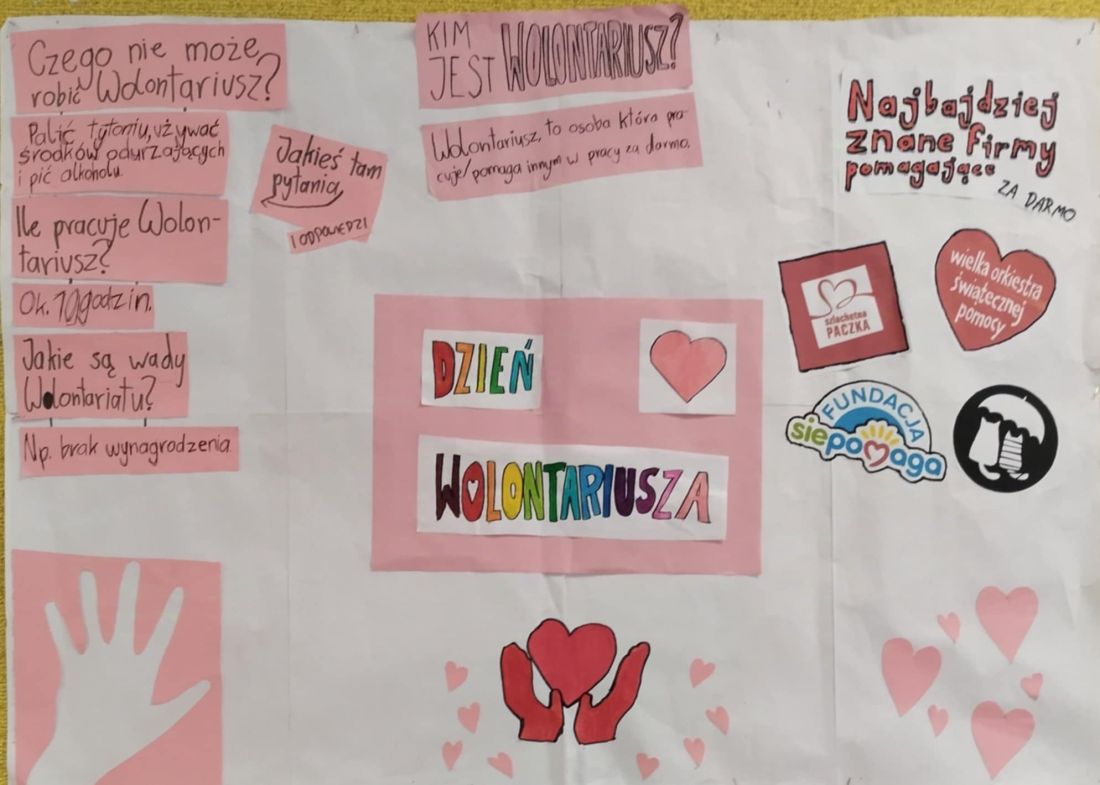 Czego nie może
robić Wolontariusz?
Palić tytoniu, używać
środków odurzających
i pić alkoholu.
Ile pracuje Wolon-
tariusz?
Ok. 10godzin.
Jakie są wady
Wolontariatu?
Np. brak wynagrodzenia.
Jakieś tam
pytania
I ODPOWEDZI
KIM
JEST WOLONTARIUSZ?
Wolontariusz, to osoba która pra-
cuje/pomaga innym w pracy za darmo.
DZIEŃ
WOLONTARIUSZA
Najbajdziej
znane firmy
pomagające
ZA DARMO
szlachetna
PACZKA
wielka orkiestra
świątecznej
pomocy
FUNDACJA
siepomaga